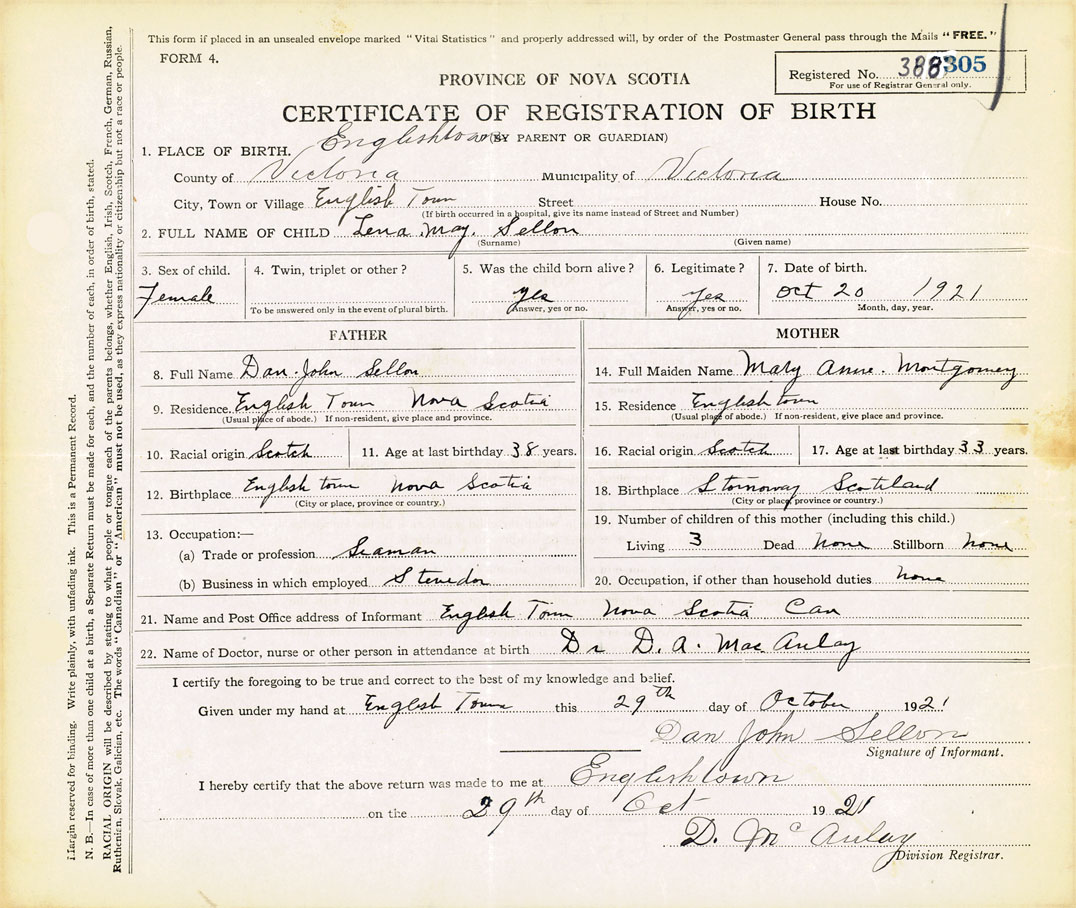 This form if placed in an unsealed envelope marked "Vital Statistics" and properly addressed will, by order of the Postmaster General pass through the Mails "FREE."
FORM 4.
PROVINCE OF NOVA SCOTIA
Registered No. 305
For use of Registrar General only.
CERTIFICATE OF REGISTRATION OF BIRTH
Englishtown (BY PARENT OR GUARDIAN)
1. PLACE OF BIRTH.
County of Victoria Municipality of Victoria
City, Town or Village English Town Street House No.
(If birth occurred in a hospital, give its name instead of Street and Number)
2. FULL NAME OF CHILD Lena May. Sellon
(Surname) (Given name)
3. Sex of child. 4. Twin, triplet or other? 5. Was the child born alive? 6. Legitimate? 7. Date of birth.
Female yes Yes Oct 20 1921
To be answered only in the event of plural birth. Answer, yes or no. Answer, yes or no. Month, day, year.
FATHER MOTHER
8. Full Name Dan. John Sellon 14. Full Maiden Name Mary Anne. Montgomery
9. Residence English Town Nova Scotia 15. Residence English town
(Usual place of abode.) If non-resident, give place and province. (Usual place of abode.) If non-resident, give place and province.
10. Racial origin Scotch 11. Age at last birthday 38 years. 16. Racial origin Scotch 17. Age at last birthday 33 years.
12. Birthplace English town Nova Scotia 18. Birthplace Stornoway Scotland
(City or place, province or country.) (City or place, province or country.)
19. Number of children of this mother (including this child.)
13. Occupation:—
(a) Trade or profession Seaman Living 3 Dead None Stillborn None
(b) Business in which employed Stevedor 20. Occupation, if other than household duties None
21. Name and Post Office address of Informant English Town Nova Scotia Can
22. Name of Doctor, nurse or other person in attendance at birth Dr D. A. Mac Aulay
I certify the foregoing to be true and correct to the best of my knowledge and belief.
Given under my hand at English Town this 29th day of October 1921
Dan John Sellon
Signature of Informant.
I hereby certify that the above return was made to me at Englishtown
on the 29th day of Oct 1921
D. McAulay
Division Registrar.
Margin reserved for binding. Write plainly, with unfading ink. This is a Permanent Record.
N. B.—In case of more than one child at a birth, a Separate Return must be made for each, and the number of each, in order of birth, stated.
RACIAL ORIGIN will be described by stating to what people or tongue each of the parents belongs, whether English, Irish, Scotch, French, German, Russian,
Ruthenian, Slovak, Galician, etc. The words "Canadian" or "American" must not be used, as they express nationality or citizenship but not a race or people.